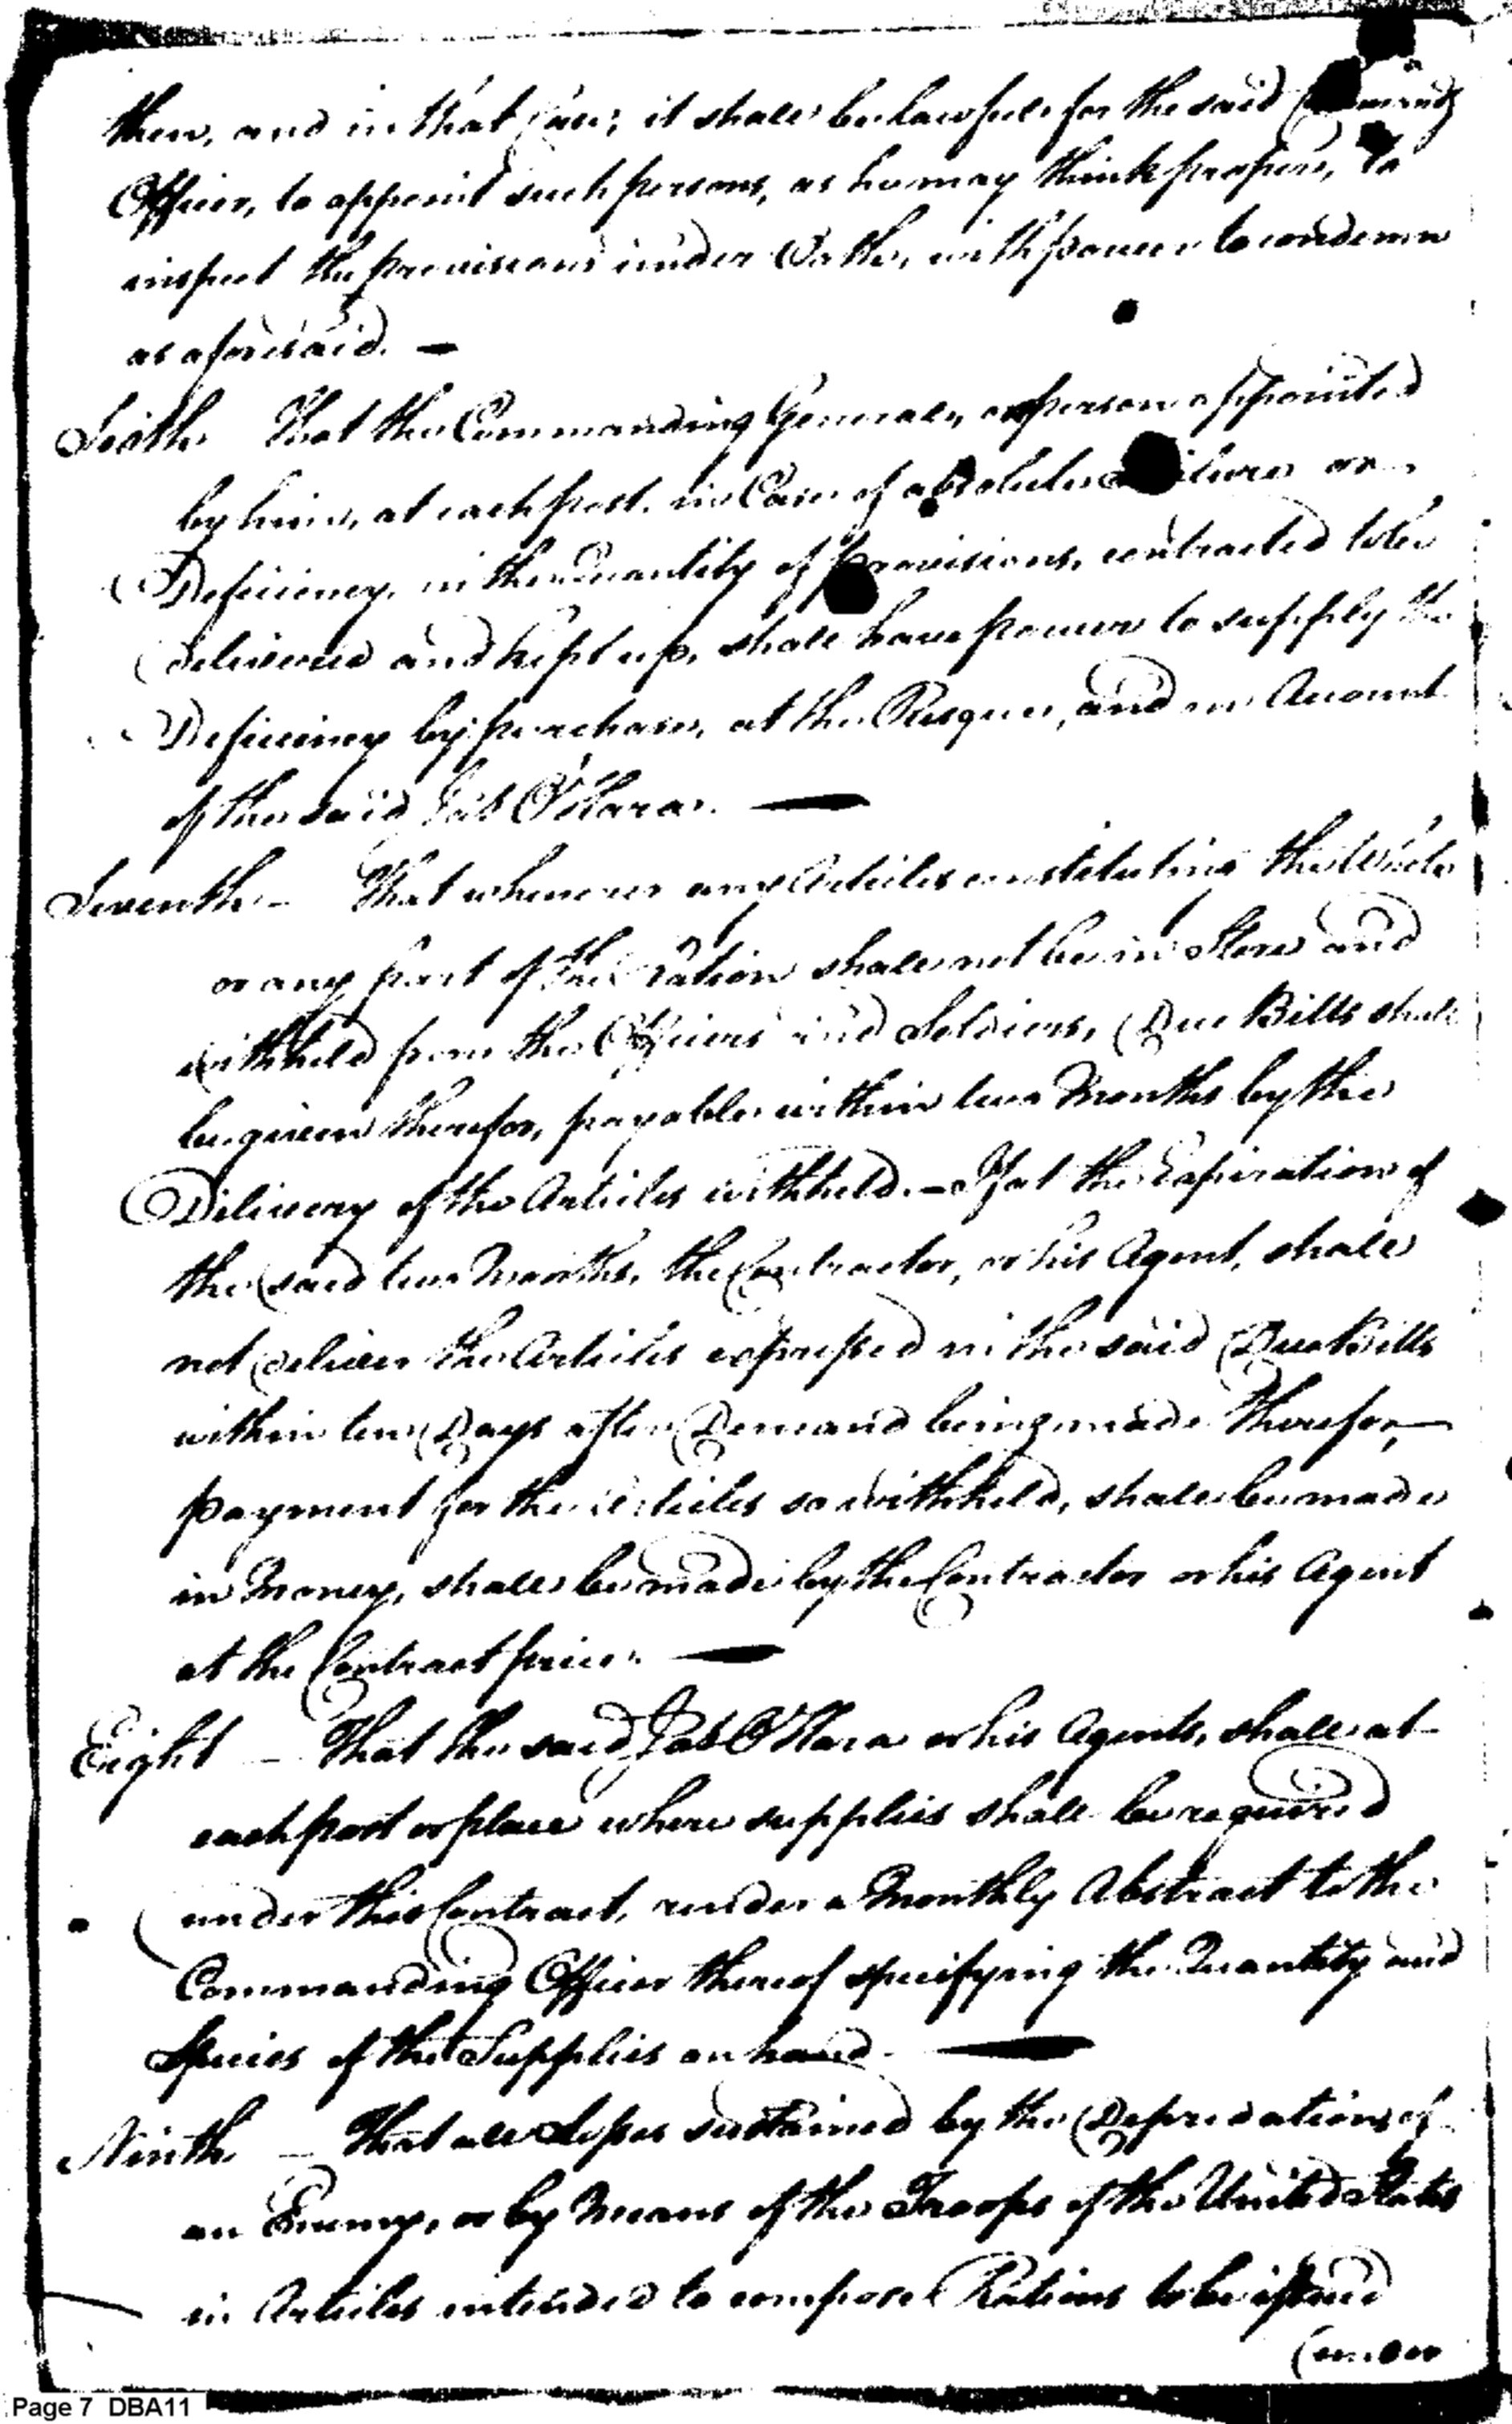 then, and in that Case; it shall be lawful for the said
Officer, to appoint such persons, as he may think proper, to
inspect the provisions under Oath, with power to condemn
as aforesaid. —
Sixth. That the Commanding General, or person appointed
by him, at each post. in Case of absolute failure or
Deficiency, in the Quantity of provisions, contracted to be
delivered and kept up, shall have power to supply the
Deficiency by purchase, at the Risque, and on Account
of the said Jas O'Hara. —
Seventh — That whenever any Articles constituting the whole
or any part of the Ration shall not be in Store and
withheld from the Officers and Soldiers, Due Bills shall
be given therefor, payable within two Months by the
Delivery of the Articles withheld. — If at the expiration of
the said two Months, the Contractor, or his Agent, shall
not deliver the Articles expressed in the said Due Bills
within ten Days after Demand being made Therefor, —
payment for the Articles so withheld, shall be made
in Money, shall be made by the Contractor or his Agent
at the Contract price. —
Eight — That the said Jas O'Hara or his Agents, shall at
each post or place where supplies shall be required
under this Contract, render a Monthly Abstract to the
Commanding Officer thereof specifying the Quantity and
Species of the Supplies on hand. —
Ninth — That all Losses sustained by the Depredations of
an Enemy, or by Means of the Troops of the United States
in Articles intended to compose Rations to be issued
under
Page 7 DBA11